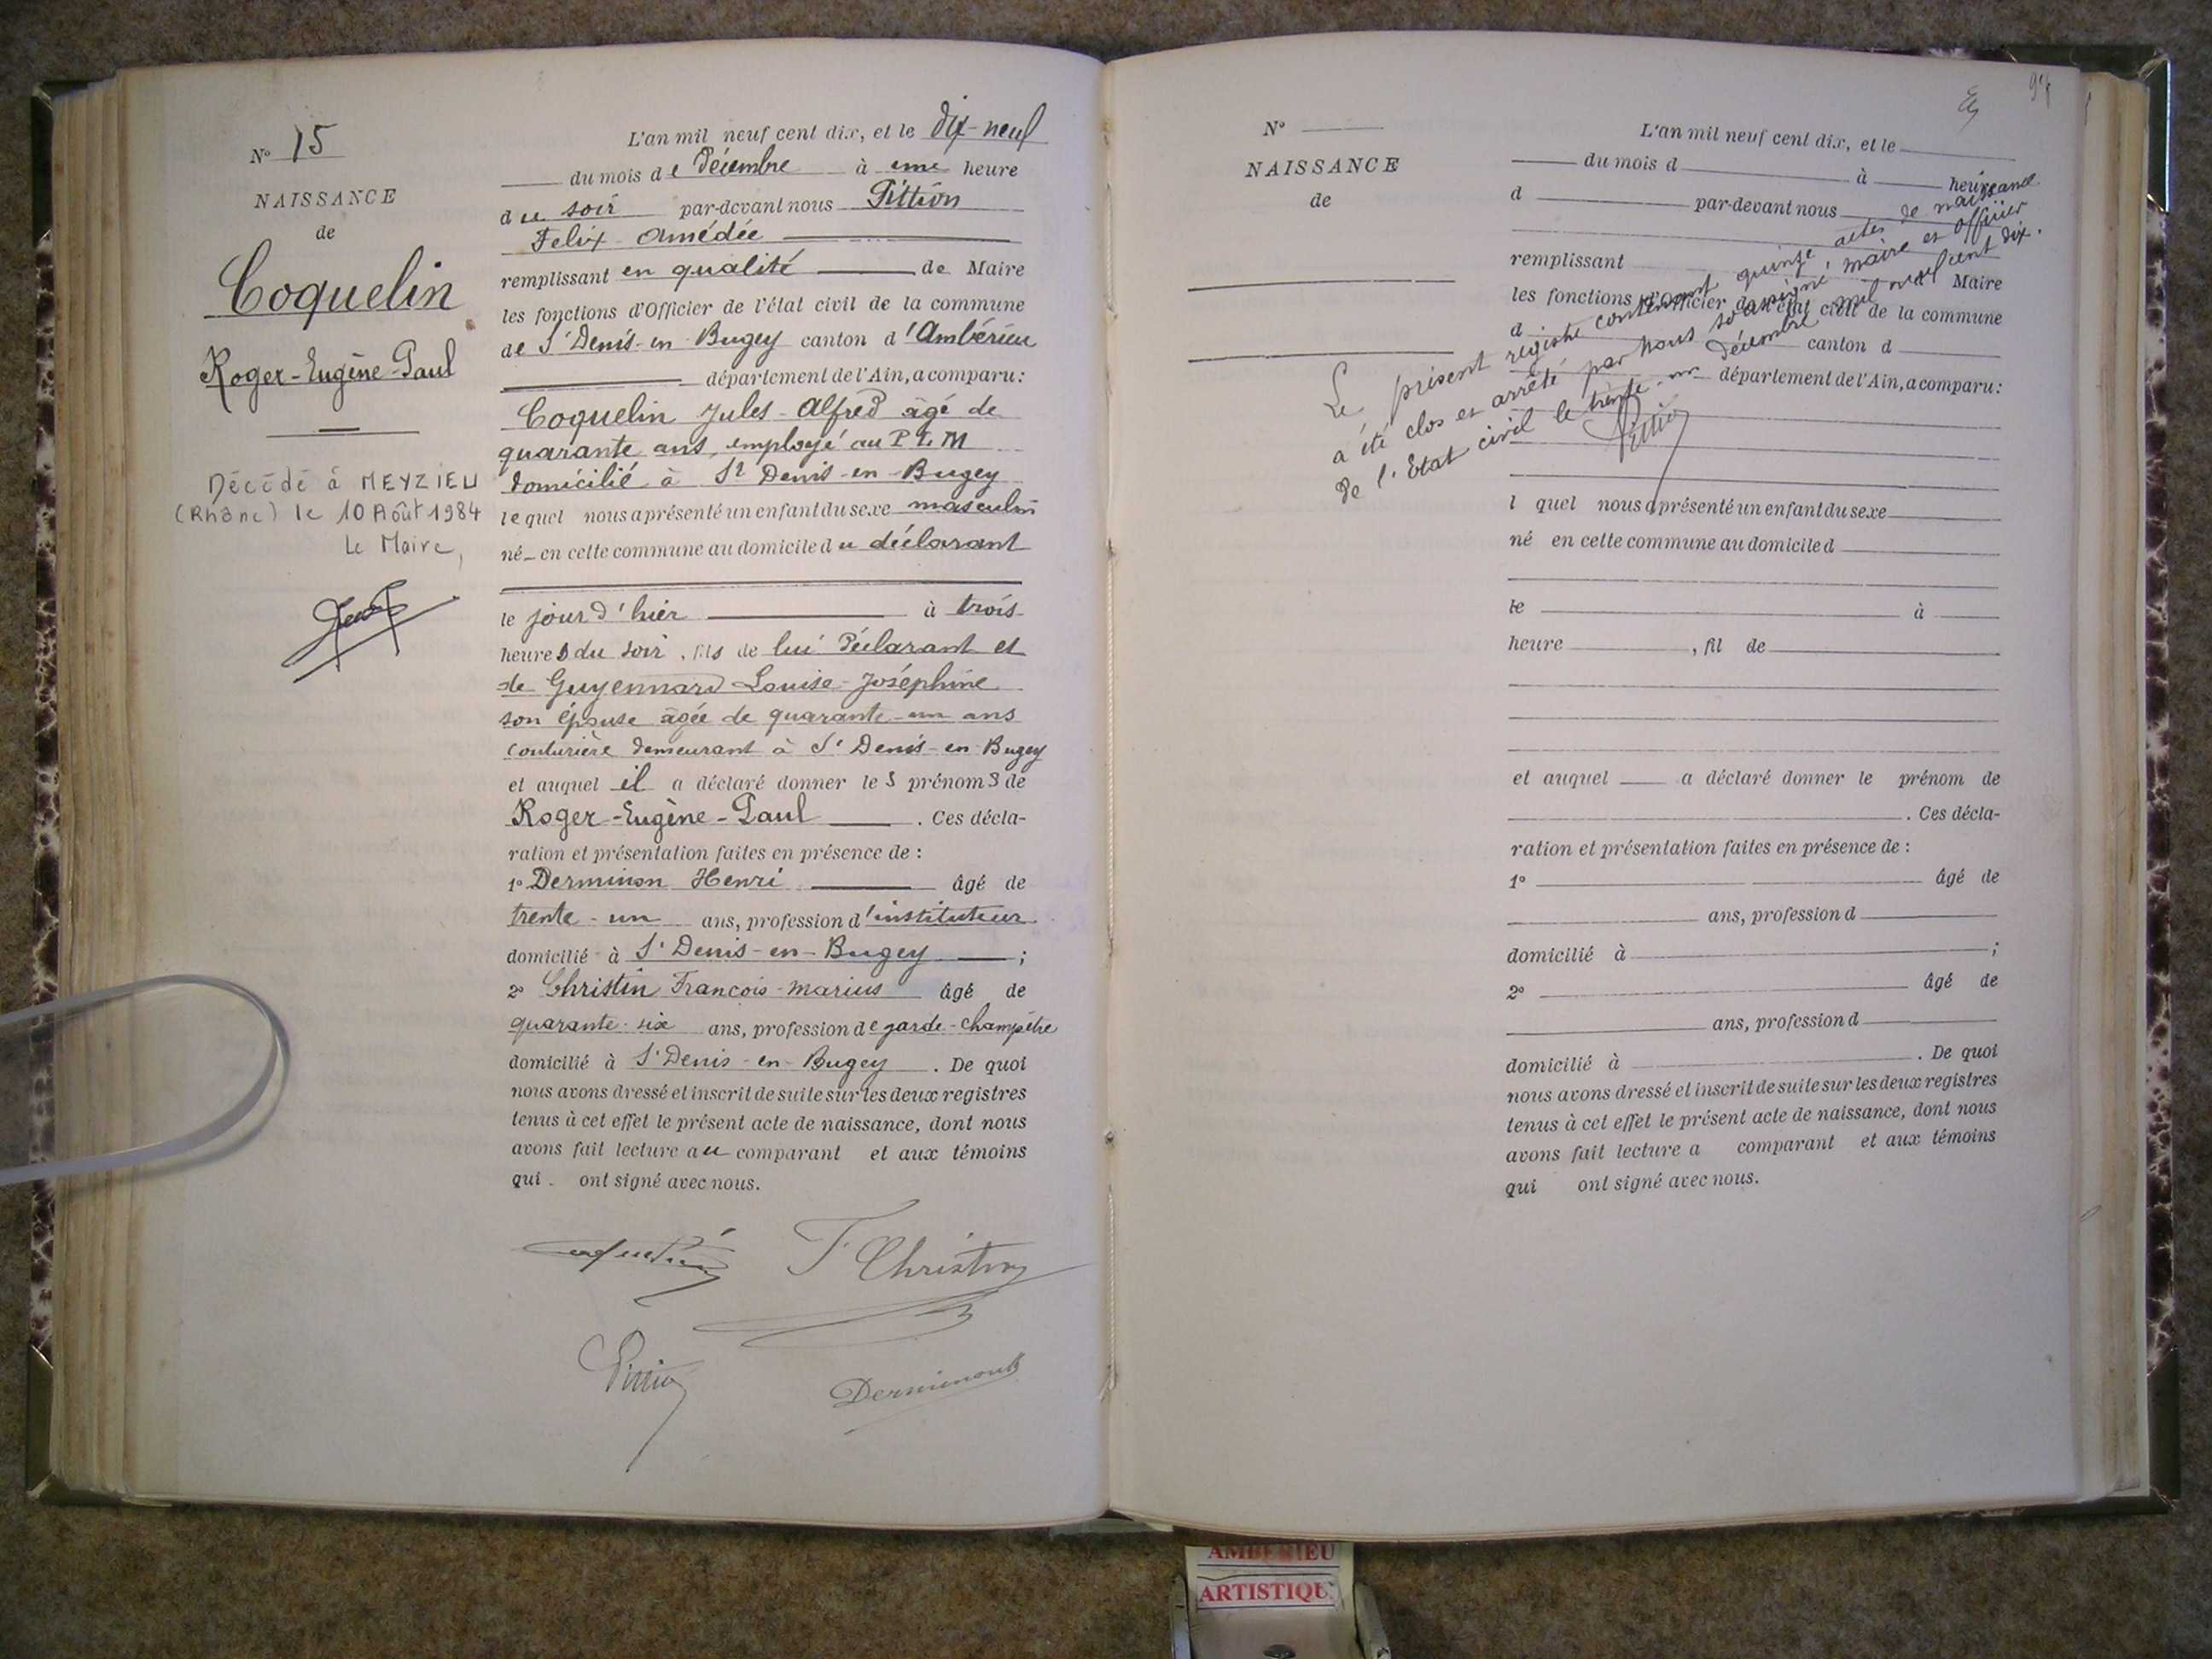 N° 15
NAISSANCE
de
Coquelin
Roger-Eugène-Paul
Décédé à MEYZIEU
(Rhône) le 10 Août 1984
Le Maire,
L'an mil neuf cent dix, et le dix-neuf
du mois de Décembre à une heure
du soir par-devant nous Pittion
Felix Amédée
remplissant en qualité de Maire
les fonctions d'Officier de l'état civil de la commune
de St Denis-en-Bugey canton d'Ambérieu
département de l'Ain, a comparu :
Coquelin Jules-Alfred âgé de
quarante ans, employé au P L M
domicilié à St Denis-en-Bugey
lequel nous a présenté un enfant du sexe masculin
né en cette commune au domicile du déclarant
le jour d'hier à trois
heures du soir, fils de lui Déclarant et
de Guyennard Louise-Joséphine
son épouse âgée de quarante-un ans
couturière demeurant à St Denis-en-Bugey
et auquel il a déclaré donner les prénoms de
Roger-Eugène-Paul . Ces décla-
ration et présentation faites en présence de :
1° Derminon Henri âgé de
trente-un ans, profession d'instituteur
domicilié à St Denis-en-Bugey ;
2° Christin François-Marius âgé de
quarante-six ans, profession de garde-champêtre
domicilié à St Denis-en-Bugey . De quoi
nous avons dressé et inscrit de suite sur les deux registres
tenus à cet effet le présent acte de naissance, dont nous
avons fait lecture au comparant et aux témoins
qui ont signé avec nous.
F Christin
Pittion
94
N°
NAISSANCE
de
L'an mil neuf cent dix, et le
du mois d à heure
d par-devant nous
remplissant Maire
les fonctions d'Officier de l'état civil de la commune
d canton d
département de l'Ain, a comparu :
Le présent registre contenant quinze actes de naissance
a été clos et arrêté par nous soussigné, maire et officier
de l'Etat civil le trente-un Décembre mil neuf cent dix.
Pittion
l quel nous a présenté un enfant du sexe
né en cette commune au domicile d
le à
heure , fil de
et auquel a déclaré donner le prénom de
. Ces décla-
ration et présentation faites en présence de :
1° âgé de
ans, profession d
domicilié à ;
2° âgé de
ans, profession d
domicilié à . De quoi
nous avons dressé et inscrit de suite sur les deux registres
tenus à cet effet le présent acte de naissance, dont nous
avons fait lecture a comparant et aux témoins
qui ont signé avec nous.
AMBERIEU
ARTISTIQU